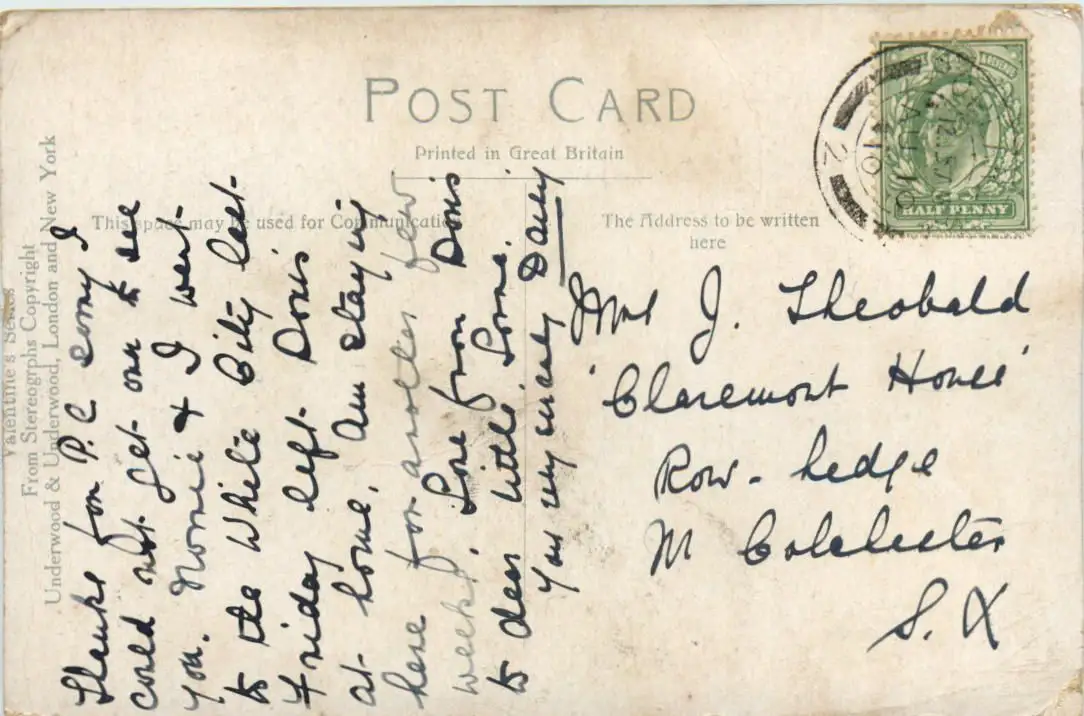 POST CARD
Printed in Great Britain
This space may be used for Communication
The Address to be written
here
HALF PENNY
Valentine's Series
From Stereogrphs Copyright
Underwood & Underwood, London and New York
Thanks for P.C sorry I
could not get over to see
you. Norni & I went
to the White City last
Friday left Doris
at home. Am staying
here for another few
weeks. Love from Doris
to dear little
Your very
Mrs J. Theobald
'Claremont House'
Row-hedge
Nr Colchester
S.X